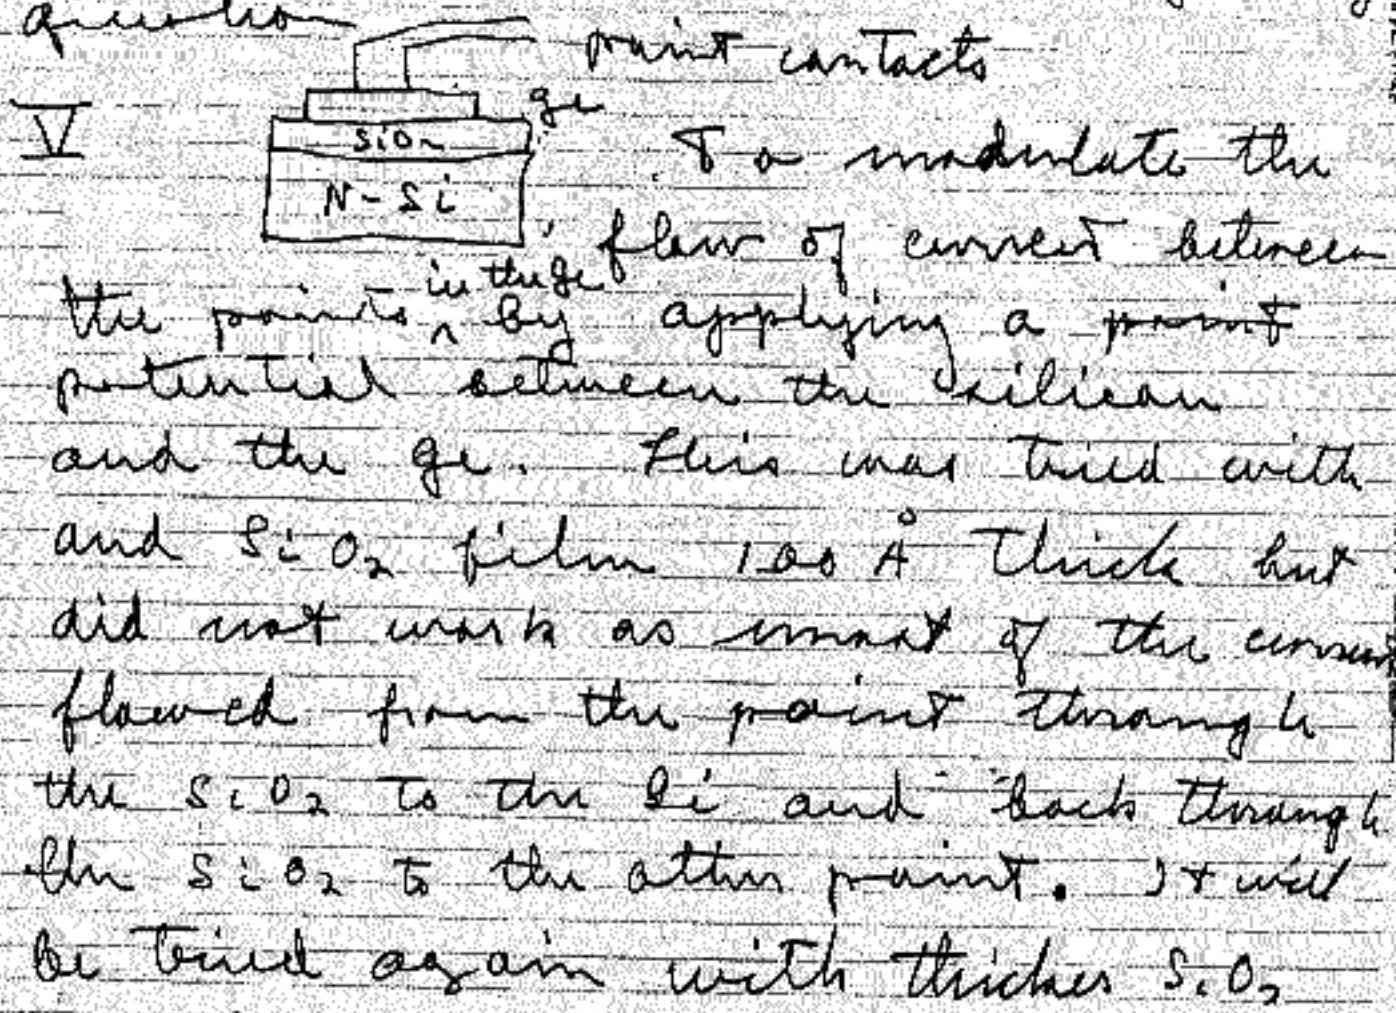 question
point contacts
ge
V
SiO2
N-Si
To modulate the
flow of current between
in the ge
the points ^ by applying a point
potential between the silicon
and the ge. This was tried with
and SiO2 film 100 Å thick but
did not work as most of the current
flowed from the point through
the SiO2 to the Si and back through
the SiO2 to the other point. It will
be tried again with thicker SiO2